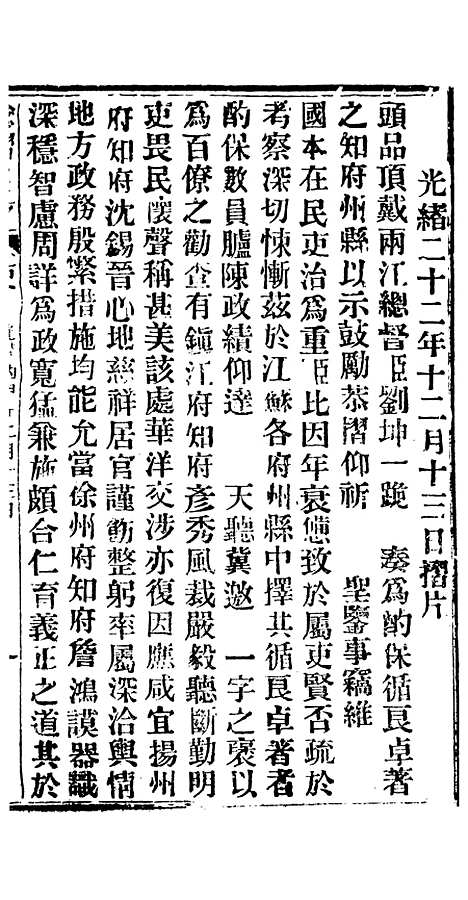 光緒二十二年十二月十三日摺片
頭品頂戴兩江總督臣劉坤一跪　奏爲酌保循良卓著
之知府州縣以示鼓勵恭摺仰祈　聖鑒事竊維
國本在民吏治爲重臣比因年衰憊致於屬吏賢否疏於
考察深切悚慚茲於江蘇各府州縣中擇其循良卓著者
酌保數員臚陳政績仰達　天聽冀邀　一字之褒以
爲百僚之勸查有鎭江府知府彥秀風裁嚴毅聽斷勤明
吏畏民懷聲稱甚美該處華洋交涉亦復因應咸宜揚州
府知府沈錫晉心地慈祥居官謹飭整躬率屬深洽輿情
地方政務殷繁措施均能允當徐州府知府詹鴻謨器識
深穩智慮周詳爲政寬猛兼施頗合仁育義正之道其於